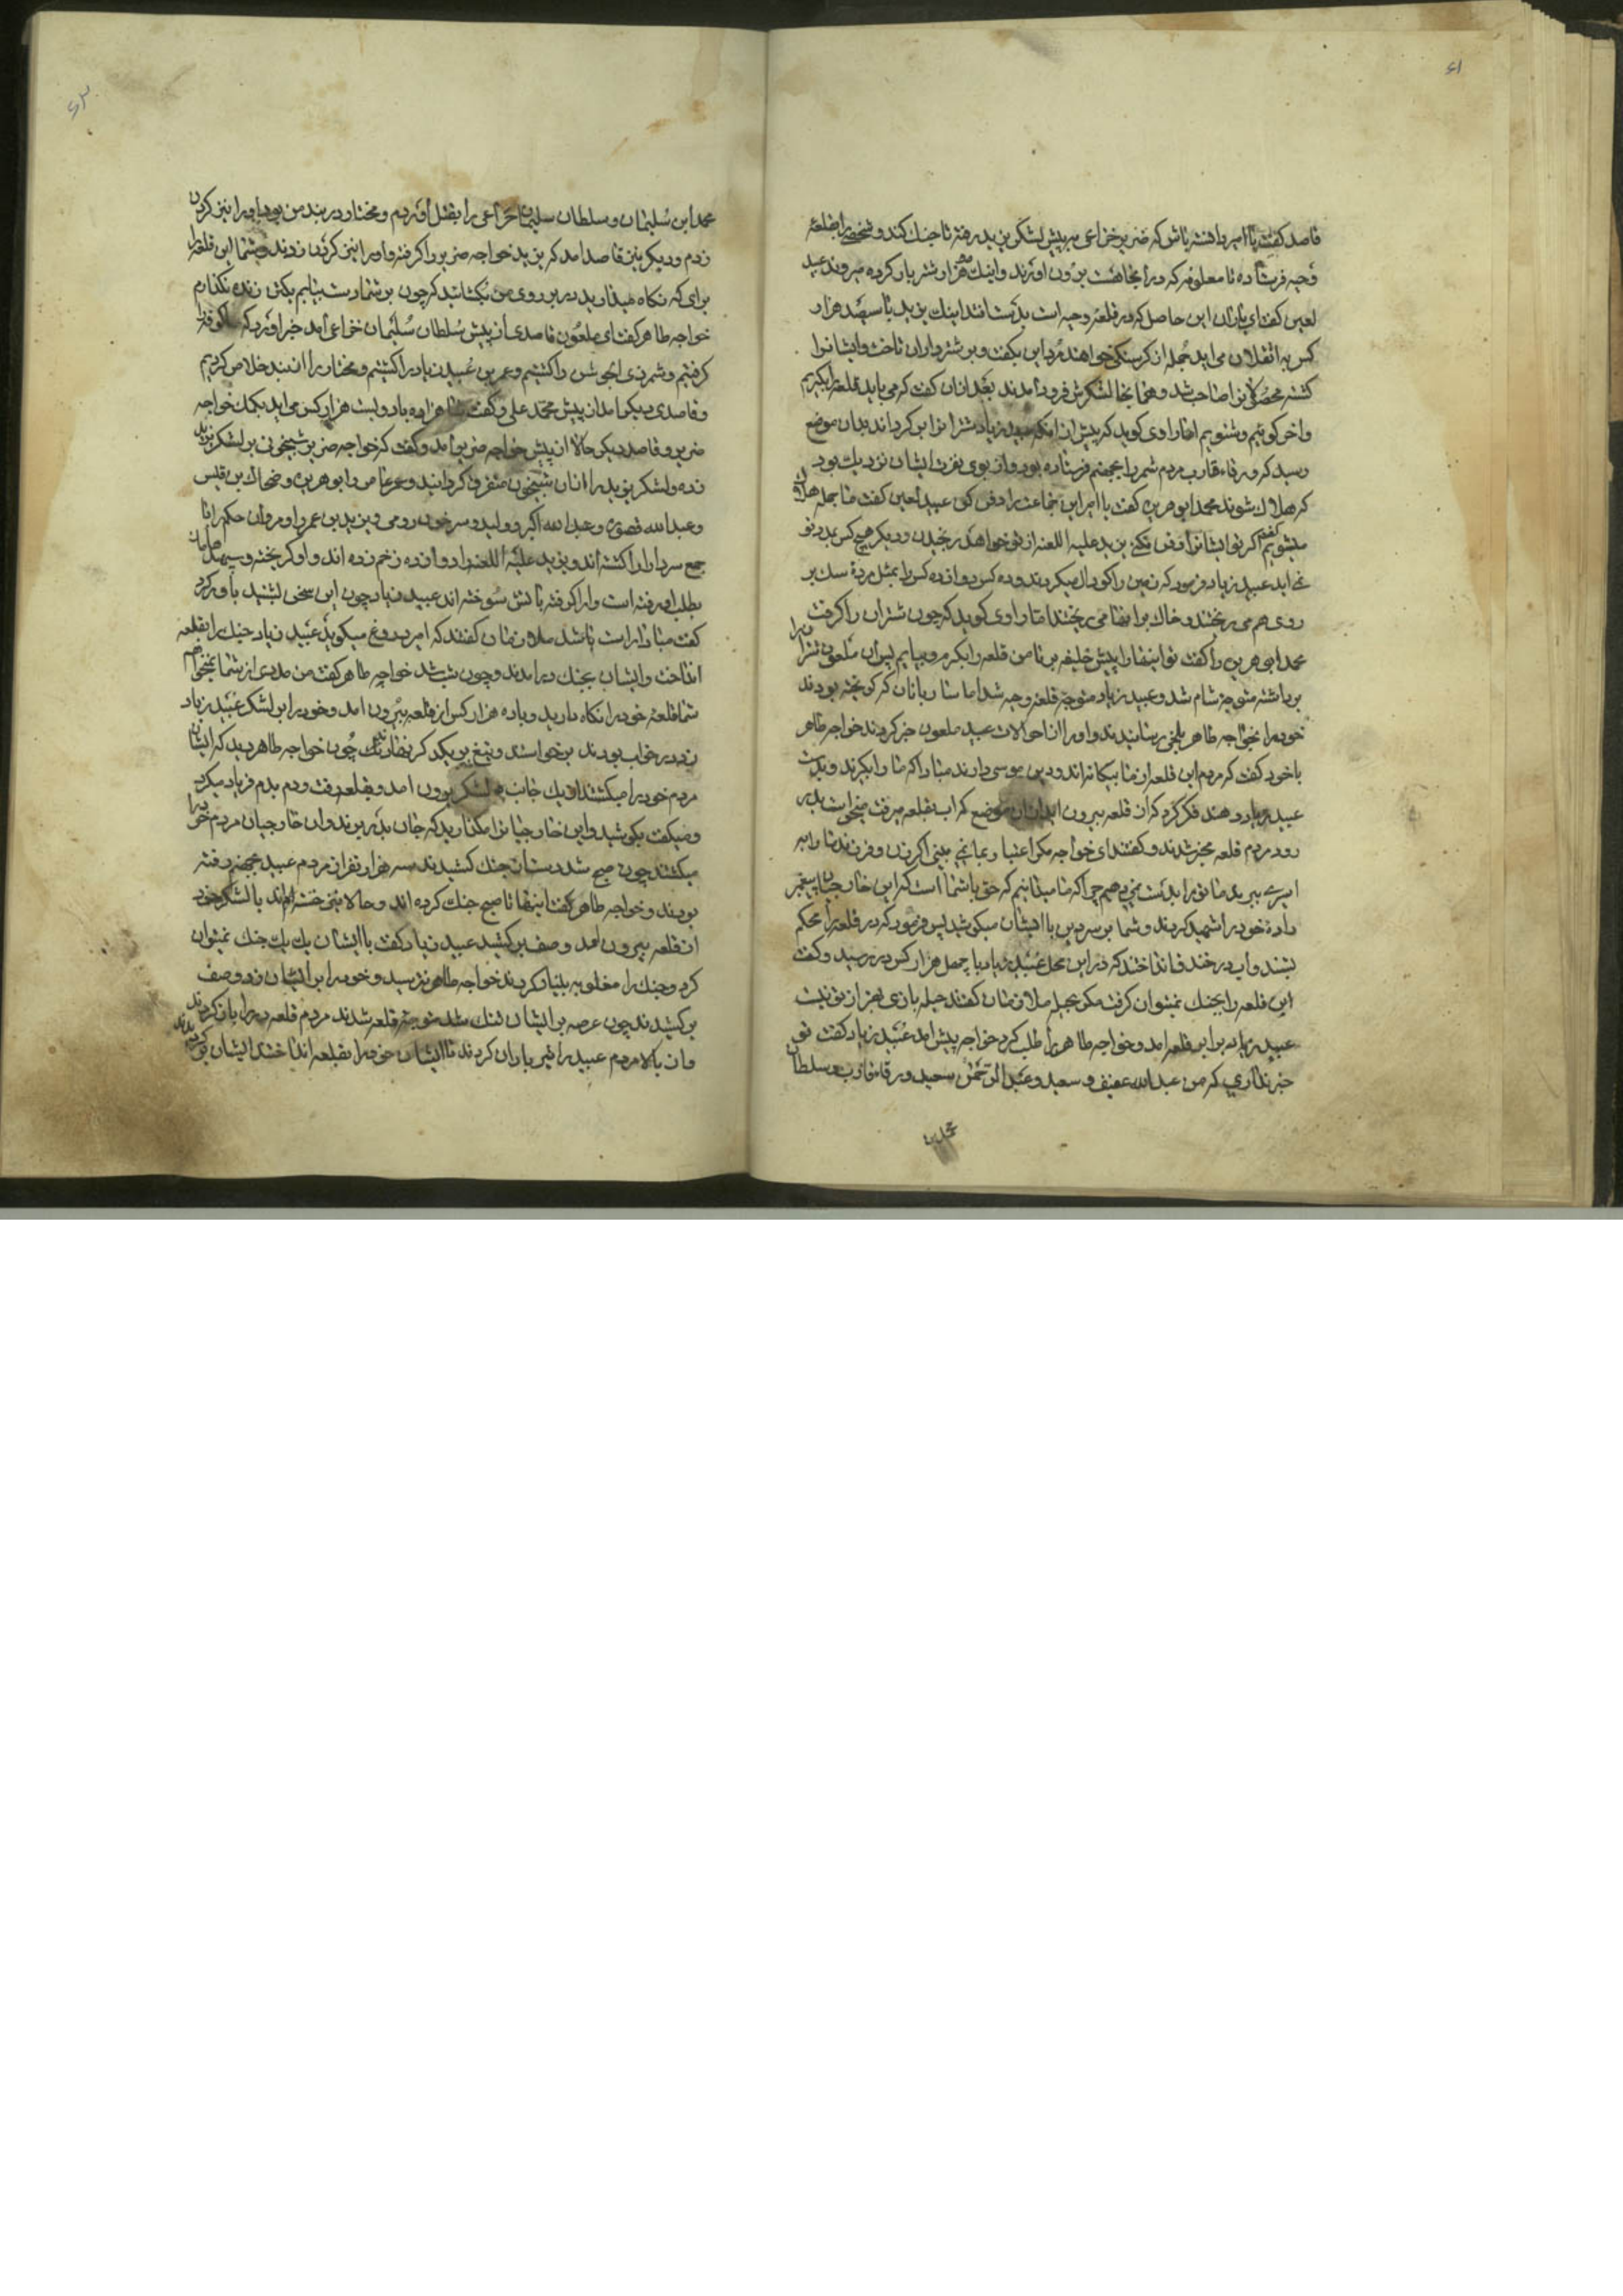 ۶۱
قاصد کفت یا امیر دانسته باش که ضریر خزاعی به پیش لشکر یزید رفته تا جنک کند و شخصی را بقلعهٔ
وجیه فرستاده تا معلوم که در انجا هست برون اورند و اینک هزار شتر بار کرده میروند عبید
لعین کفت ای یاران این حاصل که در قلعهٔ وجیه است بدست اینک یزید با سیصد هزار
کس می اید جمله از کرسنکی خواهند مرد این بکفت و بر شترداران تاخت و ایشانرا
کشته محصول را صاحب شد و همانجا لشکرش فرود امدند بعد از ان کفت که می باید قلعه را بکیریم
و اخر کوئیم و شنویم اما راوی کوید که پیش از انکه عبید زیاد شترانرا بر کرداند بدان موضع
رسید که ورقاء قارب مردم شمر را بجهنم فرستاده بود و از بوی ایشان نزدیک بود
که هلاک شوند محمد ابو هریره کفت یا امیر این جماعت را دفن کن عبید لعین کفت ما جمله هلاک
میشویم کفتم اکر تو ایشانرا دفن نکنی یزید علیه اللعنه از تو خواهد رنجیدن و دیکر هیچ کس بمدد تو
نمی اید عبید زیاد فرمود که زمین را کودال میکردند و ده کس دوازده کس را بمثل مردهٔ سک بر
روی هم می ریختند و خاک بر اینها می ریختند اما راوی کوید که چون شتران را کرفت
محمد ابی هریره را کفت تو اینها را پیش خلیفه بر تا من قلعه را بکیرم و بیایم پس ان ملعون شترانرا
برداشته متوجه شام شد و عبید زیاد متوجه قلعهٔ وجیه شد اما ساربانان که کریخته بودند
خود را بخواجه طاهر بلخی رسانیدند و او را از احوالات عبید ملعون خبر کردند خواجه طاهر
با خود کفت که مردم این قلعه از ما بیکانه اند و دین موسی دارند مبادا که ما را بکیرند و بدست
عبید زیاد دهند فکر کرد که از قلعه بیرون اید از ان موضع که اب بقلعه میرفت میخواست بدر
رود مردم قلعه مخبر شدند و کفتند ای خواجه مکر اعتبار بما نمی بینی اکر زن و فرزند ما را به
اسیری ببرید ما تو را بدست نمی دهیم چرا که ما میدانیم که حق با شما است که این خارجیان پیغمبر
زادهٔ خود را شهید کردند و شما بر سر دین با ایشان میکوشید پس فرمود که در قلعه را محکم
بستند و اب در خندق انداختند که در این محل عبید زیاد با چهل هزار کس در رسید و کفت
این قلعه را بجنک نمیتوان کرفت مکر بحیله ملازمان کفتند حیله بازی بهتر از تو نیست
عبید زیاد برابر قلعه امد و خواجه طاهر را طلب کرد خواجه پیش امد عبید زیاد کفت تو
خبر نداری که من عبدالله عفیف و سعید و عبدالرحمن سعید و ورقاء قارب و سلطان
محمد ابن
۶۲
محمد ابن سلیمان و سلطان سلیمان خزاعی را بقتل اوردم و مختار در بند من بود او را نیز کردن
زدم و دیکر نیز قاصد امد که یزید خواجه ضریر را کرفته و او را نیز کردن زدند و شما این قلعه را
برای که نکاه میدارید در بر روی من بکشائید که چون بر شما دست بیابم یکتن زنده نکذارم
خواجه طاهر کفت ای ملعون قاصدی از پیش سلطان سلیمان خزاعی امد خبر اورد که کوفه را
کرفتیم و شمر ذی الجوشن را کشتیم و عمر بن عبید زیاد را کشتیم و مختار را از بند خلاص کردیم
و قاصدی دیکر امد از پیش محمد علی و کفت شاهزاده با دویست هزار کس می اید بکمک خواجه
ضریر و قاصد دیکر حالا از پیش خواجه ضریر امد و کفت که خواجه ضریر شبیخونی بر لشکر یزید
زده و لشکر یزید را از ان شبیخون متفرق کردانیده و عمر عاص و ابو هریره و ضحاک بن قیس
و عبدالله قصوره و عبدالله اکبر و ولید و سرخون رومی و یزید بن عمر و مروان حکم را با
جمع سرداران کشته اند و یزید علیه اللعنه را دوازده زخم زده اند و او کریخته و سپهسالاران
بطلب او رفته است و او را کرفته باتش سوخته اند عبید زیاد چون این سخن بشنید باور کرد
کفت مبادا راست باشد ملازمان کفتند که امیر دروغ میکوید عبید زیاد جنک را بقلعه
انداخت و ایشان بجنک در امدند و چون شب شد خواجه طاهر کفت من مددی از شما نمیخواهم
شما قلعهٔ خود را نکاه دارید و با ده هزار کس از قلعه بیرون امد و خود را بر لشکر عبید زیاد
زد در خواب بودند برخواستند و تیغ بر یکدکر نهادند چون خواجه طاهر دید که ایشان
مردم خود را میکشتند از یک جانب لشکر بیرون امد و بقلعه رفت و دم بدم فریاد میکرد
و میکفت بکوشید و این خارجیانرا مکذارید که جان بدر برند و ان خارجیان مردم خود را
میکشتند چون صبح شد دست از جنک کشیدند سه هزار نفر از مردم عبید بجهنم رفته
بودند و خواجه طاهر کفت اینها تا صبح جنک کرده اند و حالا خسته اند با لشکر خود
از قلعه بیرون امد و صف بر کشید عبید زیاد کفت با ایشان یک یک جنک نمیتوان
کرد و جنک را مغلوبه بنیاد کردند خواجه طاهر نترسید و خود را بر ایشان زد و صف
بر کشیدند چون عرصه بر ایشان تنک شد متوجه قلعه شدند مردم قلعه در را باز کردند
و از بالا مردم عبید را تیر باران کردند تا ایشان خود را بقلعه انداختند ایشان بر کردیدند